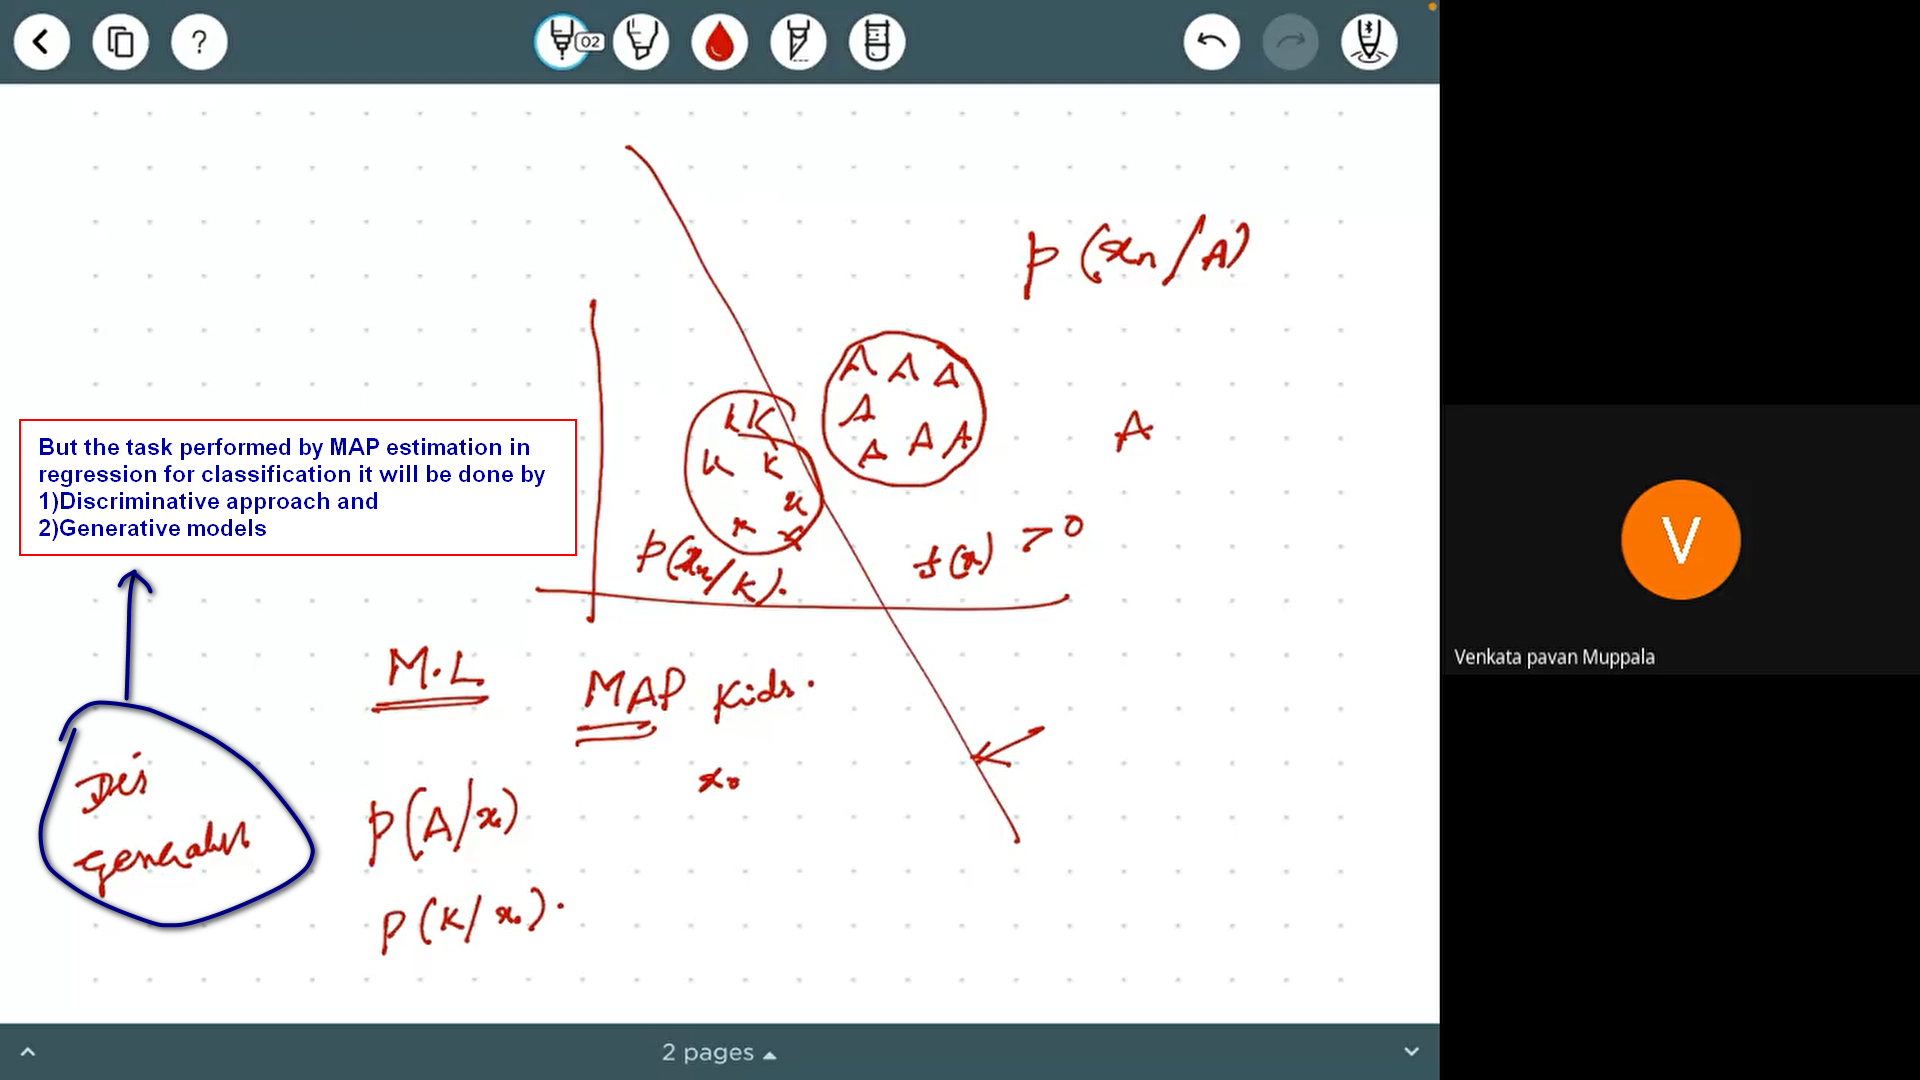 02
p(xn/A)
A A A
A
A A A
A
K K
K K
x
x x
p(xn/K).
f(x) > 0
But the task performed by MAP estimation in
regression for classification it will be done by
1)Discriminative approach and
2)Generative models
M.L
MAP Kids.
x0
Dis
p(A/x0)
p(K/x0).
V
Venkata pavan Muppala
2 pages